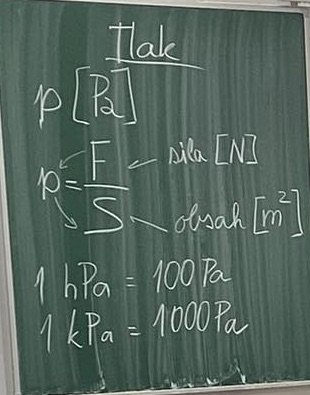 Tlak
p [Pa]
p = F/S
síla [N]
obsah [m²]
1 hPa = 100 Pa
1 kPa = 1000 Pa